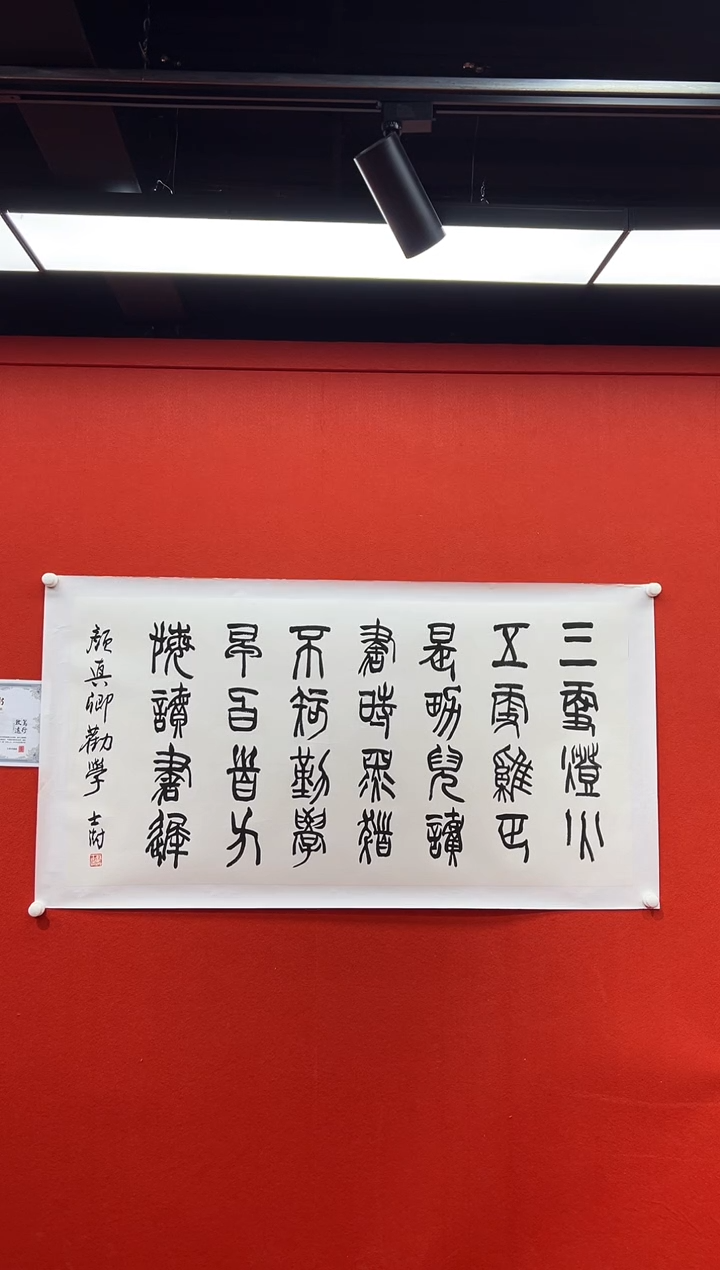 三更燈火
五更雞正
是男兒讀
書時黑髮
不知勤學
早白首方
悔讀書遲
顏真卿勸學